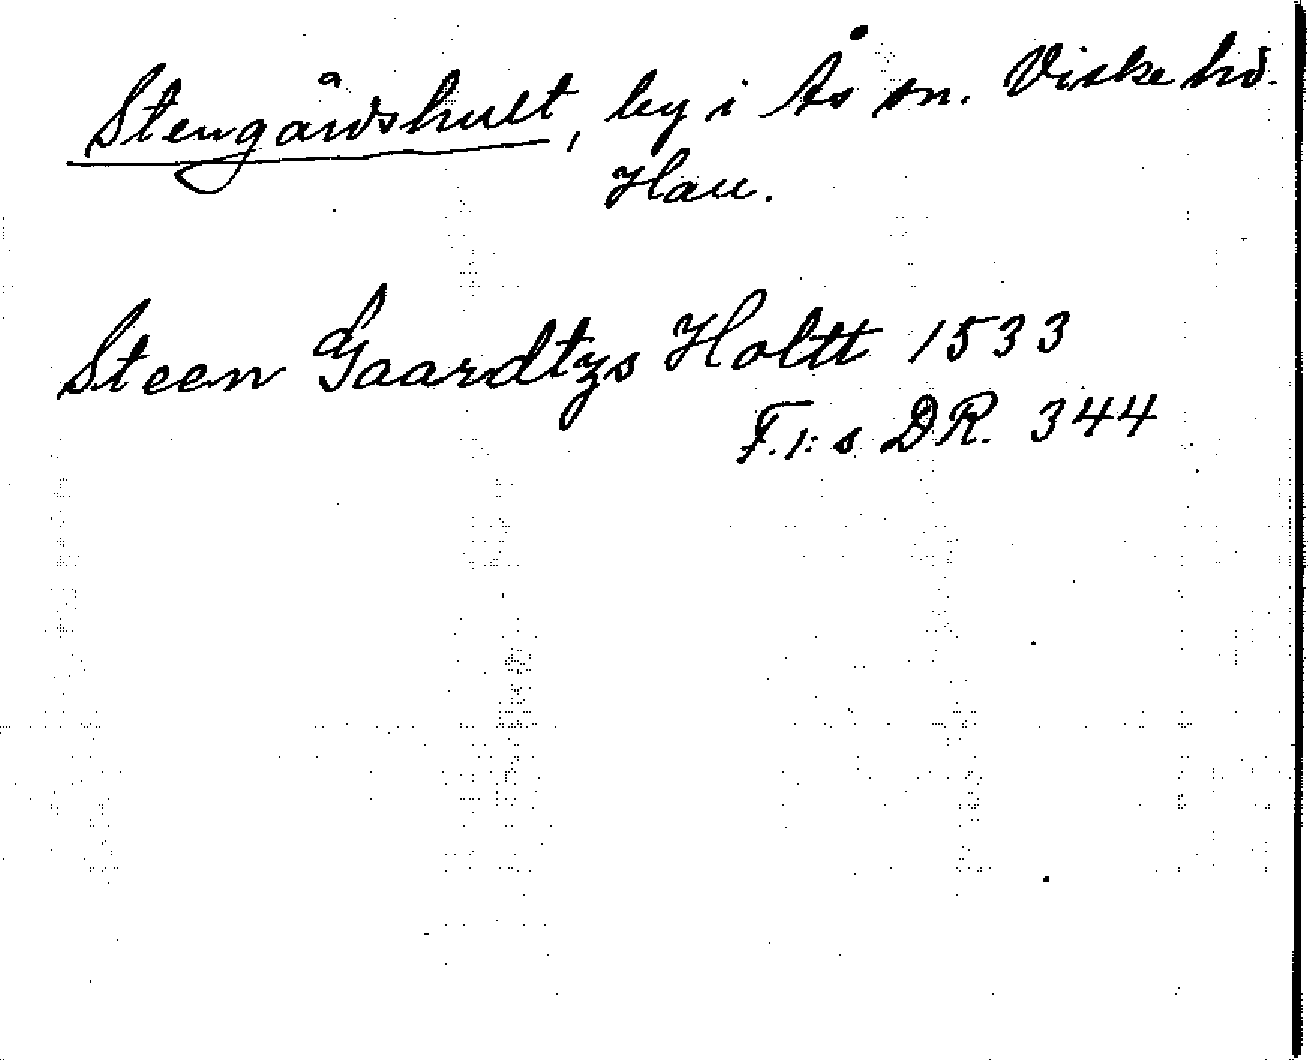 Stengårdshult, by i Ås sn. Viske hd.
Hall.
Steen Gaardtzs Holtt 1533
F.1:s DR. 344